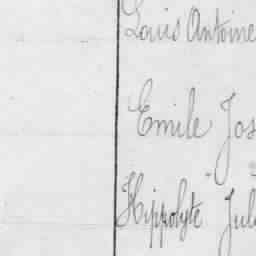 Louis Antoine
Emile Jos
Hippolyte Jul